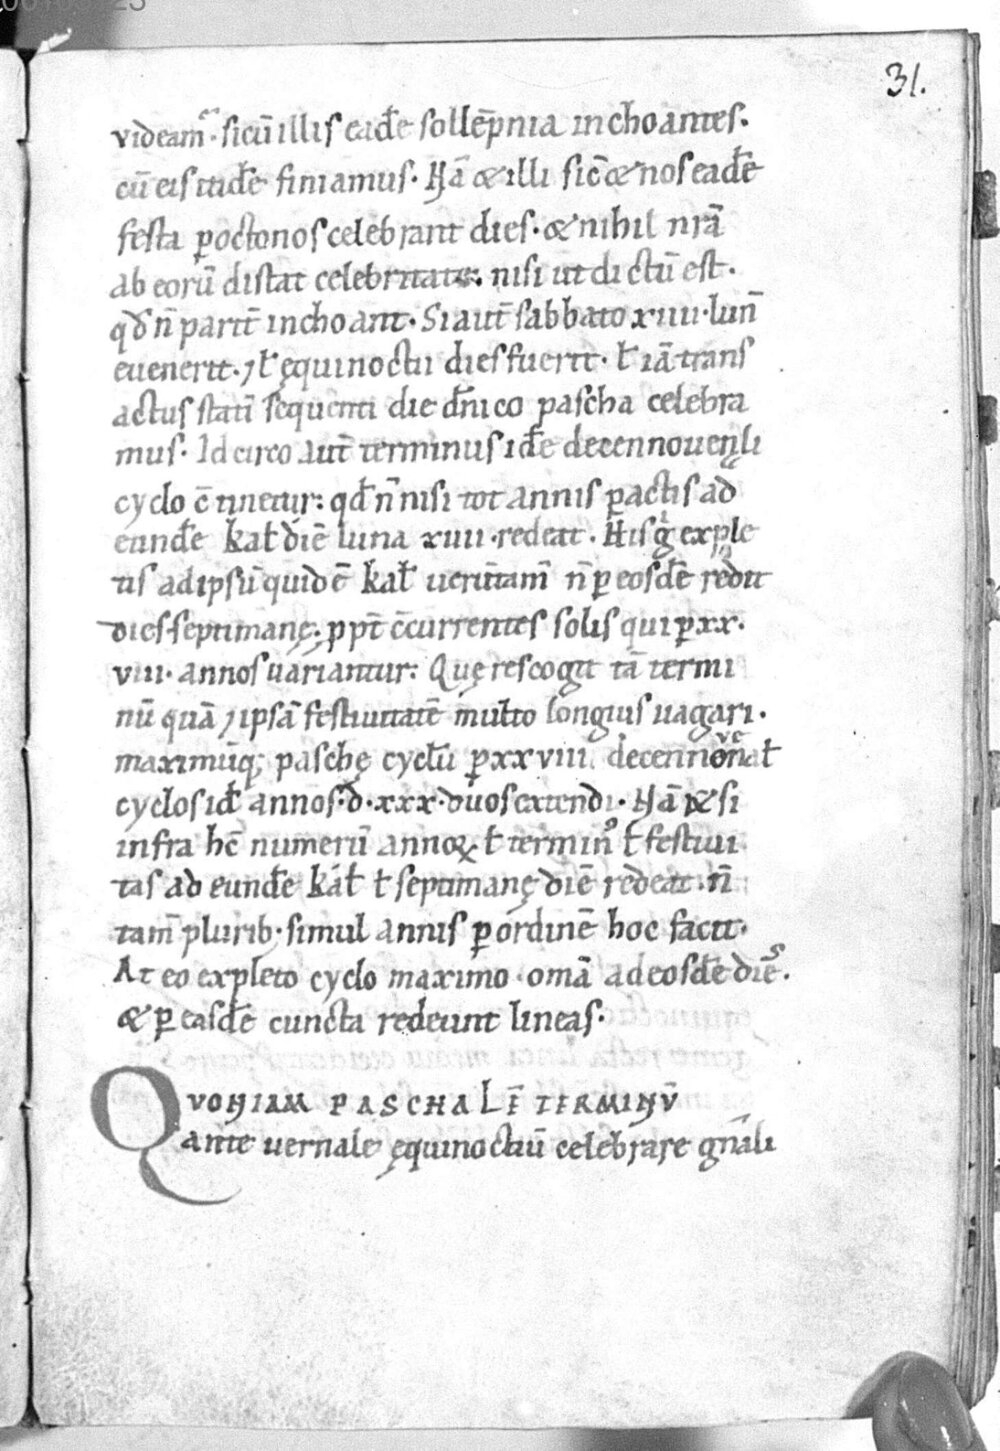 31.
videam᷑. sicū illis ead̄e sollēpnia inchoantes.
cū eis itid̄e finiamus. Nā & illi sic̄ & nos ead̄e
festa ꝑ octonos celebrant dies. & nihil nr̄ā
ab eorū distat celebritate. nisi ut dictū est.
qd̄ n̄ parit̄ inchoant. Si aut̄ sabbato xiiii. lun̄
euenerit. ⁊ ł ęquinoctii dies fuerit. ł iā trans
actus statī sequenti die dn̄ico pascha celebra
mus. Idcirco aut̄ terminus id̄e decennouenęli
cyclo c̄tinetur: qd̄ n̄ nisi tot annis ꝑactis ad
eund̄e kał diē luna xiiii. redeat. His g̊ exple
tis ad ipsū quidē kał uerūtam̄ n̄ ꝑ eosd̄e redit
dies septimanę. ꝓpt̄ c̄currentes solis qui ꝑ xx.
viii. annos uariantur: Quę res cogit tā termi
nū quā ⁊ ipsā festiuitatē multo longius uagari.
maximūq; paschę cyclū ꝑ xxviii. decennouenał
cyclos id̄ annos. d. xxx. duos extendi. Nā & si
infra hc̄ numerū annoꝝ ł terminꝰ ł festiui
tas ad eund̄e kał ł septimanę diē redeat. n̄
tam̄ plurib. simul annis ꝑ ordinē hoc facit.
At eo expleto cyclo maximo. om̄a ad eosd̄e diēs.
& ꝑ easd̄e cuncta redeunt lineas.
QVONIAM PASCHALĒ TERMINV̄
ante uernale ęquinoctiū celebrare gn̄ali